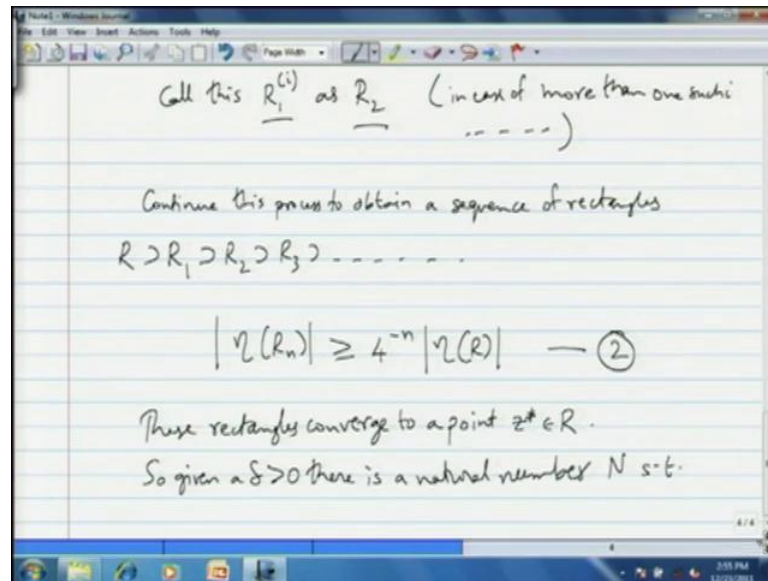 Note1 - Windows Journal
File Edit View Insert Actions Tools Help
Page Width
Call this R₁⁽ⁱ⁾ as R₂ (in case of more than one such i
-----)
Continue this process to obtain a sequence of rectangles
R ⊃ R₁ ⊃ R₂ ⊃ R₃ ⊃ - - - - - -
|η(Rₙ)| ≥ 4⁻ⁿ |η(R)| — ②
These rectangles converge to a point z* ∈ R.
So given a δ>0 there is a natural number N s-t.
4/4
4
2:55 PM